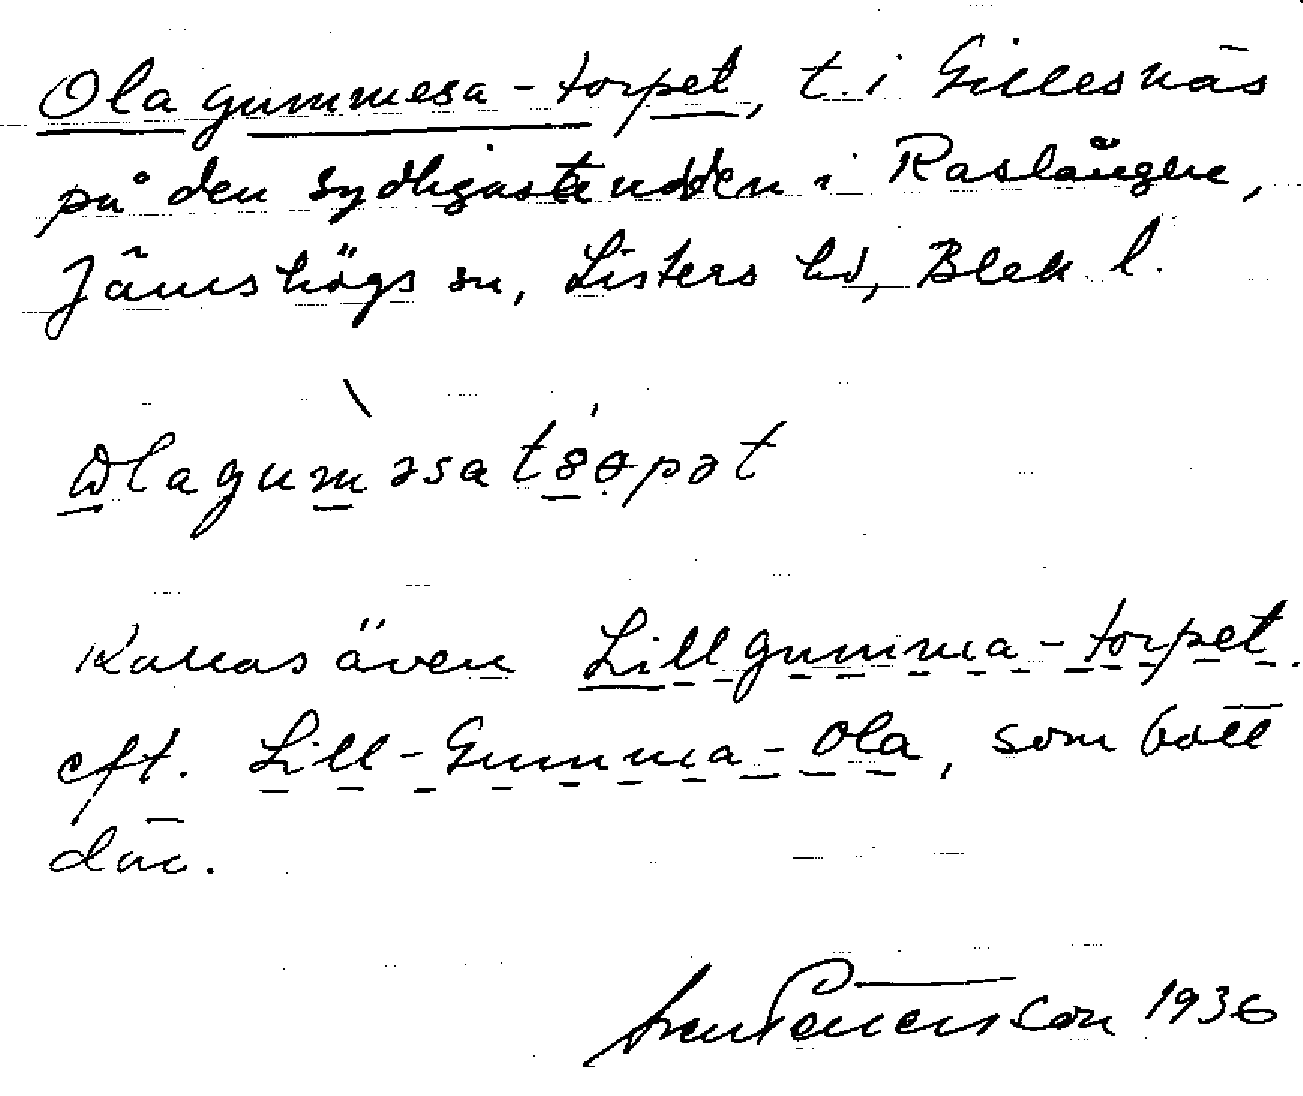 Ola gummesa-torpet, t. i Gillesnäs
på den sydligaste udden i Raslången,
Jämshögs sn, Listers hd, Blek l.
Kallas även Lillgumma-torpet.
eft. Lill-Gumma-Ola, som bott
där.
Sven Petersson 1936